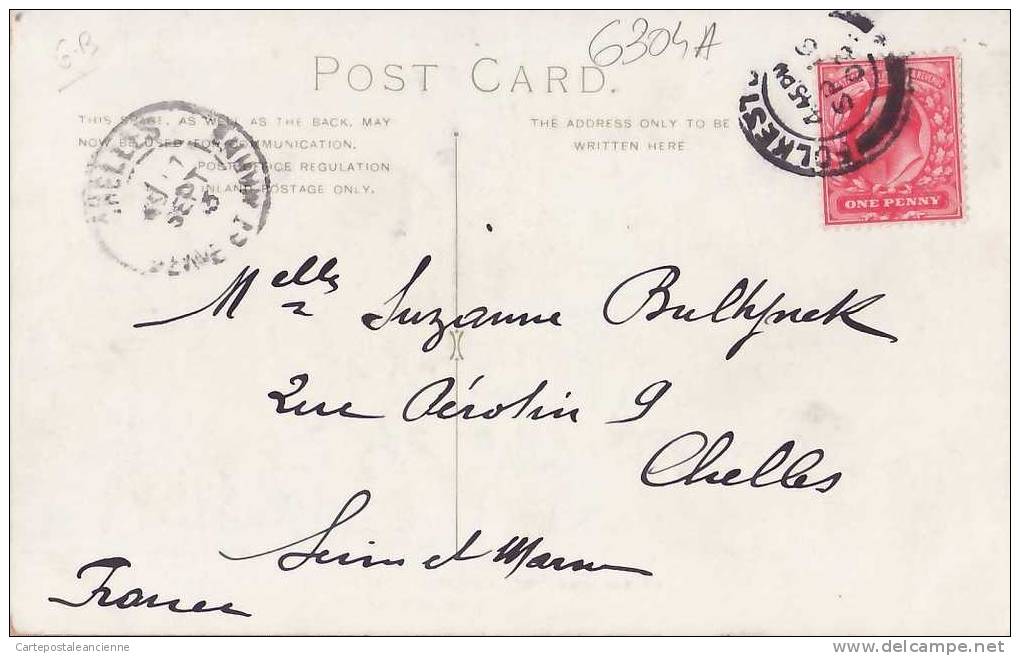 G.B
6304A
POST CARD.
THIS SPACE, AS WELL AS THE BACK, MAY
NOW BE USED FOR COMMUNICATION.
POST OFFICE REGULATION
INLAND POSTAGE ONLY.
THE ADDRESS ONLY TO BE
WRITTEN HERE
FOLKEST
4.45 PM
CHELLES
SEPT
SEINE ET MARNE
ONE PENNY
Melle Suzanne
2 rue Pérotin 9
Chelles
Seine et Marne
France
Cartepostaleancienne
delcampe.net